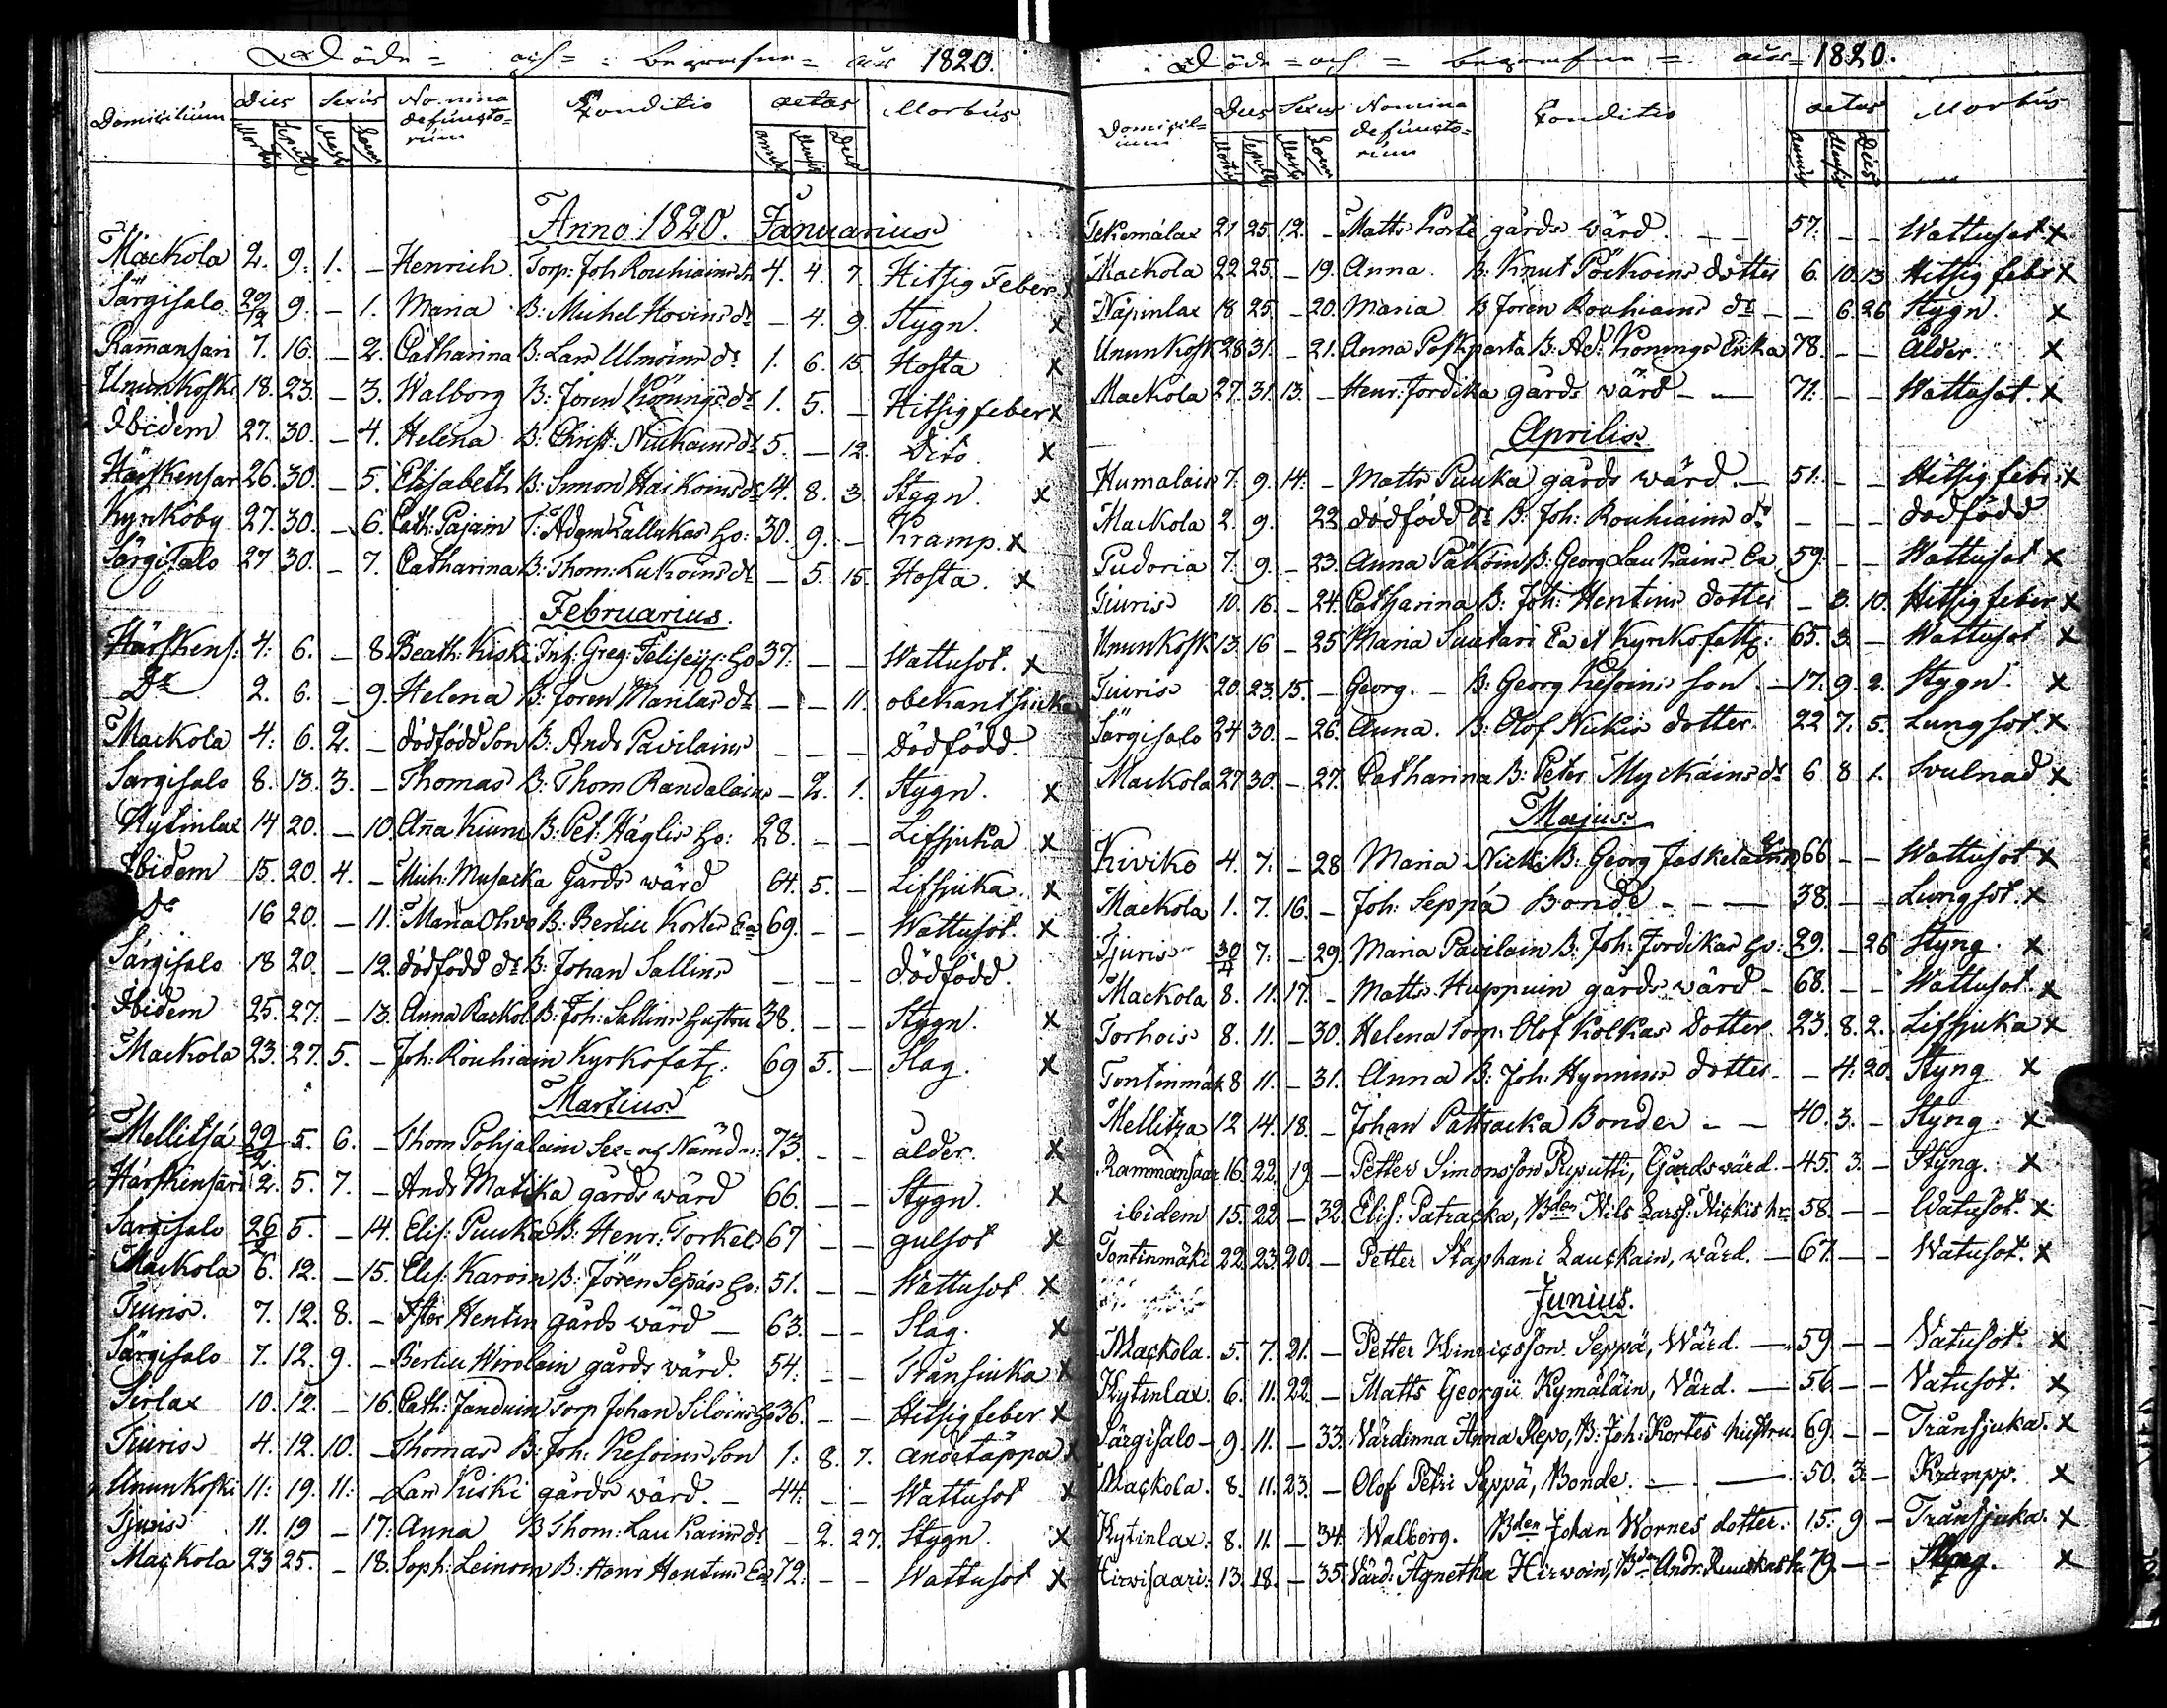 Döde = och = begrafne = år 1820.
Domicilium Dies Sexus Nomina defuncto-rum Conditio aetas Morbus
Mortis Sepult Masc Foem annus Mens Dies
Anno 1820. Januarius
Mackola 2. 9. 1. – Henrich Torp: Joh Rouhiains S. 4. 4. 7. Hitsig Feber. x
Särgisalo 29/12 9. – 1. Maria B: Michel Hovins dr – 4. 9. Stygn. x
Ram̄ansari 7. 16. – 2. Catharina B: Lars Ulmoins dr 1. 6. 15. Hosta x
Unnunkoski 18. 23. – 3. Walborg B: Jören Könings dr 1. 5. – Hitsig feber x
Ibidem 27. 30. – 4. Helena B: Christ: Niukains dr 5. – 12. Dito. x
Härskensar 26. 30. – 5. Elisabeth B: Simon Haikoins dr 14. 8. 3. Stygn. x
Kyrkoby 27. 30. – 6. Cath: Pajain T: Adam Lallukas Hu: 30. 9. – Kramp. x
Särgisalo 27 30. – 7. Catharina B: Thom: Lukoins dr – 5. 15. Hosta. x
Februarius.
Härskens: 4: 6. – 8. Beath: Kiski Inh: Greg: Hu 37: – – Wattusot. x
Dr 2. 6. – 9. Helena B: Jören Manilas dr – – 11. obekant siuka
Mackola 4: 6. 2. – dödfödd son B: Ands Pavilains – – – Dödfödd.
Sargisalo 8. 13. 3. – Thomas B: Thom Randalains – 2. 1. Stygn. x
Kytinlax 14 20. – 10. An̄a Kiuru B: Pet: Häglis Hu: 28. – – Lifsjuka x
Ibidem 15. 20. 4. – Mich: Musacka Gårds wärd 64. 5. – Lifsjuka. x
Dr 16 20. – 11. Maria Ohvo B: Bertill Kortes Ea 69. – – Wattusot. x
Särgisalo 18 20. – 12. dödfödd dr B: Johan Sallins – – – dödfödd.
Ibidem 25. 27. – 13. Anna Rackol. B: Joh: Sallins hustru 38. – – Stygn. x
Mackola 23. 27. 5. – Joh: Rouhiain Kyrkofat: 69 3. – Slag. x
Martius
Mellitsä 29/2 5. 6. – Thom Pohjalain Sex= of Nämdm: 73. – – ålder. x
Härskensäri 2. 5. 7. – Ands Matika gårds wärd 66. – – Stygn. x
Sargisalo 26/2 5. – 14. Elis: Puuka B: Henr: Torkels 67 – – gulsot x
Mackola 6. 12. – 15. Elis: Karoin B: Jören Sepäs Hu: 51. – – Wattusot x
Tiuris. 7. 12. 8. – Hentin gårds wärd – 63. – – Slag. x
Särgisalo 7. 12. 9. – Bertill Wirolain gårds wärd. 54: – – Trånsiuka x
Sirlax 10. 12. – 16. Cath: Janduin Torp Johan Siloins Hu 36. – – Hitsig feber x
Tiuris 4. 12. 10. – Thomas B: Joh: Kesoins Son 1: 8. 7. andetäppa x
Unnunkoski 11: 19. 11: – Lars Kiski gårds wärd. – 44: – – Wattusot x
Tjuris 11. 19 – 17: Anna B Thom: Laukains dr – 2. 27. Stygn. x
Mackola 23 25. – 18. Soph: Leinoin B: Henr Hentins Ea 72: – – Wattusot x
Döde = och = begrafne = år = 1820.
Domicil-ium Dies Sexus Nomina defuncto-rum Conditio aetas Morbus
Mortis Sepult Masc Foem Annus Mensis Dies
Tekemälax 21 25 12. – Matts Korte gårds wärd. – – 57. – – Wattusot x
Mackola 22 25. – 19. Anna. B: Knut Pöckoins dotter 6. 10. 13 Hitsig feber x
Näpinlax 18 25. – 20. Maria B Jören Rouhiains dr – – 6. 26 Stygn. x
Unnunkosk 28 31. – 21. Anna Poskparta B: Ad: Konings Enka 78. – – Ålder. x
Mackola 27. 31. 13. – Henr: Jordika gårds wärd – – 71: – – Wattusot. x
Aprilis
Humalais 7. 9. 14: – Matts Puuka gårds wärd. – 51: – – Hitsig feber x
Mackola 2. 9. 22. dödfödd dr B: Joh: Rouhiains dr – – – dödfödd
Pudoria 7. 9. – 23. Anna Pälköin B: Georg Laukains Ea 59: – – Wattusot x
Tiuris 10. 16. – 24. Catharina B: Joh: Hentins dotter – 3. 10. Hitsig feber x
Unnunkosk 13. 16 – 25 Maria Suutari Ea et Kyrkofattig: 65. 3. – Wattusot x
Tiuris 20. 23. 15. – Georg. – B: Georg Kesoins son. – 17. 9. 2. Stygn. x
Särgisalo 24 30. – 26. Anna. B: Olof Nickis dotter. 22 7. 5. Lungsot. x
Mackola 27 30. – 27. Catharina B: Peter Myckäins dr 6 8 1. Svulnad x
Majus
Kiviko 4. 7. – 28 Maria Nicki B: Georg Jaskelains 66 – – Wattusot x
Mackola 1. 7. 16. – Joh: Seppä Bonde – – – 38. – – Lungsot. x
Tjuris 30/4 7. – 29. Maria Pavilain B: Joh: Jordikas Hu: 29. – 26 Styng. x
Mackola 8. 11. 17. – Matts Huppuin gårds wärd – 68. – – Wattusot. x
Torhois 8. 11. – 30. Helena Torp: Olof Kolkas Dotter. 23. 8. 2. Lifsjuka x
Tontinmäk 8 11. – 31. Anna B: Joh: Hyminis dotter – – 4: 20. Styng x
Mellitza 12 14. 18. – Johan Pattracka Bonder – – 40. 3. – Styng. x
Rammansaar 16. 22. 19 – Petter Simonsson Reputti, Gårdswärd. – 45. 3. – Styng. x
ibidem 15. 22. – 32. Elis: Patracka, Bden Nils Larss: Nickis hu 58. – – Watusot. x
Tontinmäki 22. 23. 20. – Petter Staphani Lauckain, wärd. – 67. – – Watusot. x
Junius.
Mackola. 5. 7. 21. – Petter Hinricsson Seppä, Wärd. – 59 – – Vatusot. x
Kytinlax. 6. 11. 22. – Matts Georgii Kymäläin, Värd. – 56. – – Vatusot. x
Särgisalo – 9. 11. – 33. Värdinna Anna Repo, B: Joh: Kortes hustru. 69. – – Trånsjuka. x
Mackola. 8. 11. 23. – Olof Petri Seppä, Bonde. – – 50. 3. – Krampp. x
Kytinlax. 8. 11. – 34. Walborg. Bden Johan Wornes dotter. 15. 9 – Trånsjuka. x
Hirvisaari: 13. 18. – 35. Värd: Agnetha Hirwoin, Bdn Andr: Ruuskas h. 79. – – Styng. x